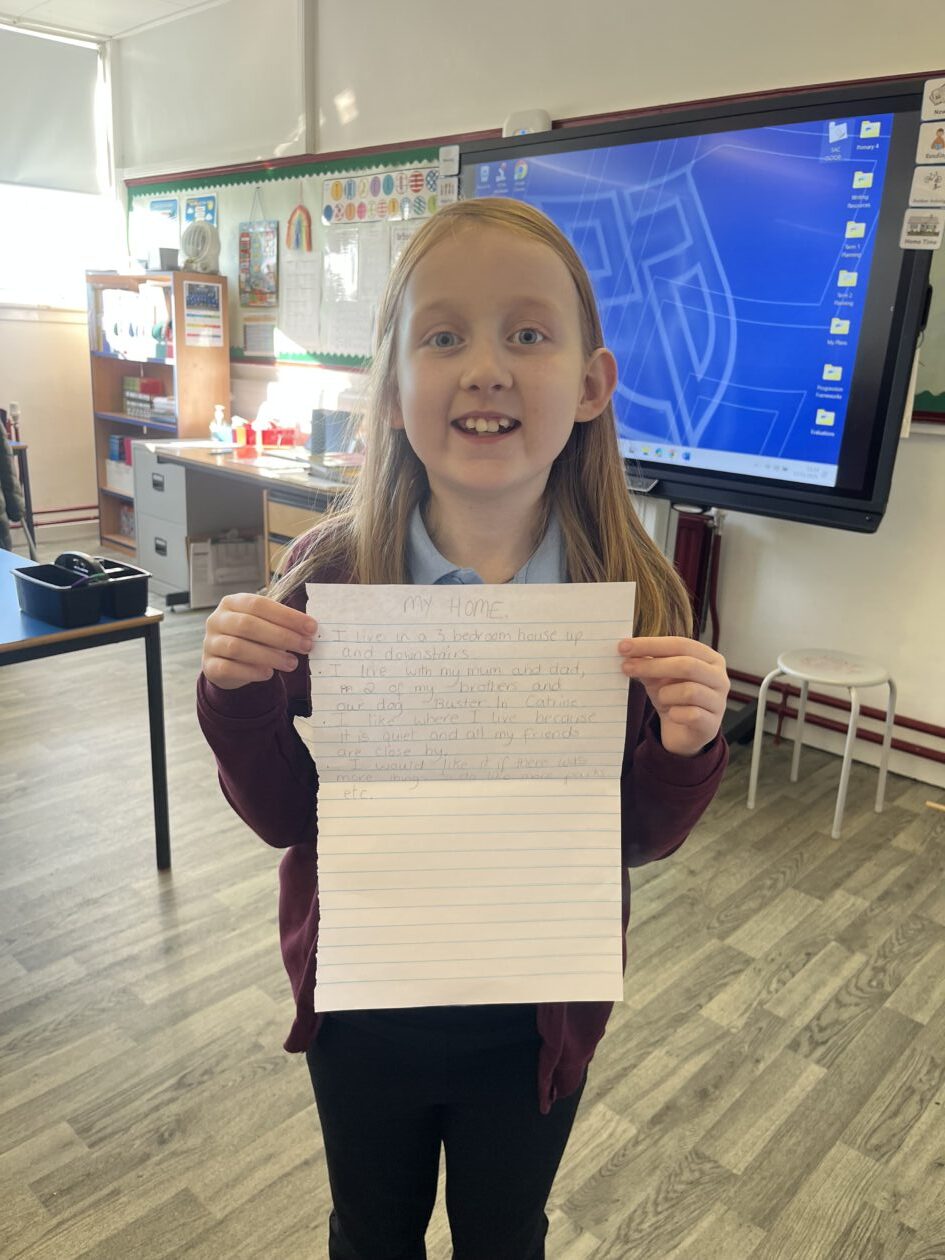 MY HOME.
• I live in a 3 bedroom house up
and downstairs.
• I live with my mum and dad,
2 of my brothers and
our dog Buster in Catrine.
• I like where I live because
it is quiet and all my friends
are close by.
• I would like it if there was
more things to do like more parks
etc.
Primary 4
Writing
Resources
Term 1
Planning
Term 2
Planning
My Plans
Progression
Frameworks
Evaluations
Home Time